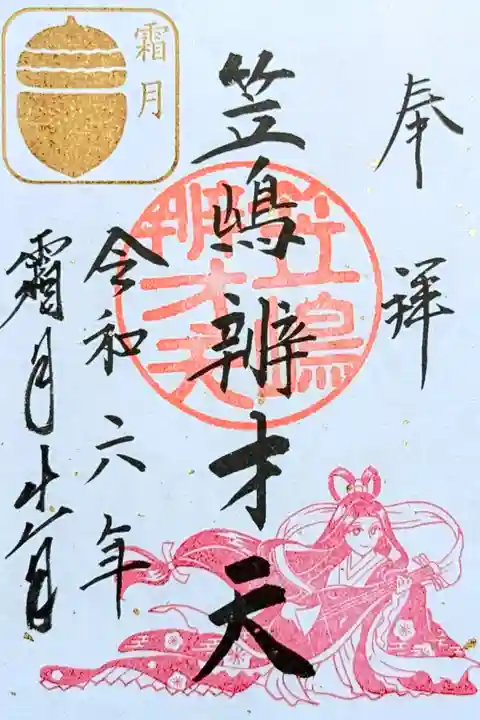 奉拝
笠嶋辨才天
笠嶋
辨才天
令和六年
霜月
霜月